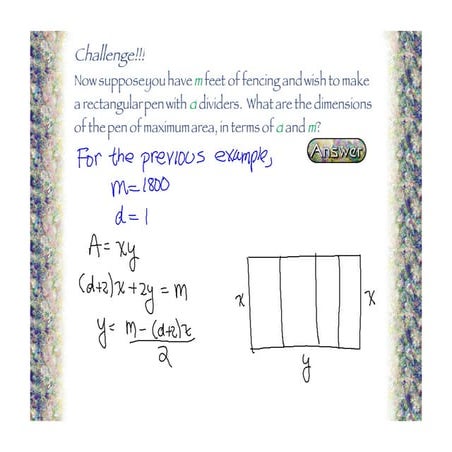 Challenge!!!
Now suppose you have m feet of fencing and wish to make
a rectangular pen with d dividers. What are the dimensions
of the pen of maximum area, in terms of d and m?
For the previous example,
Answer
m=1800
d=1
A=xy
(d+2)x+2y=m
y= m-(d+2)x
2
x
x
y